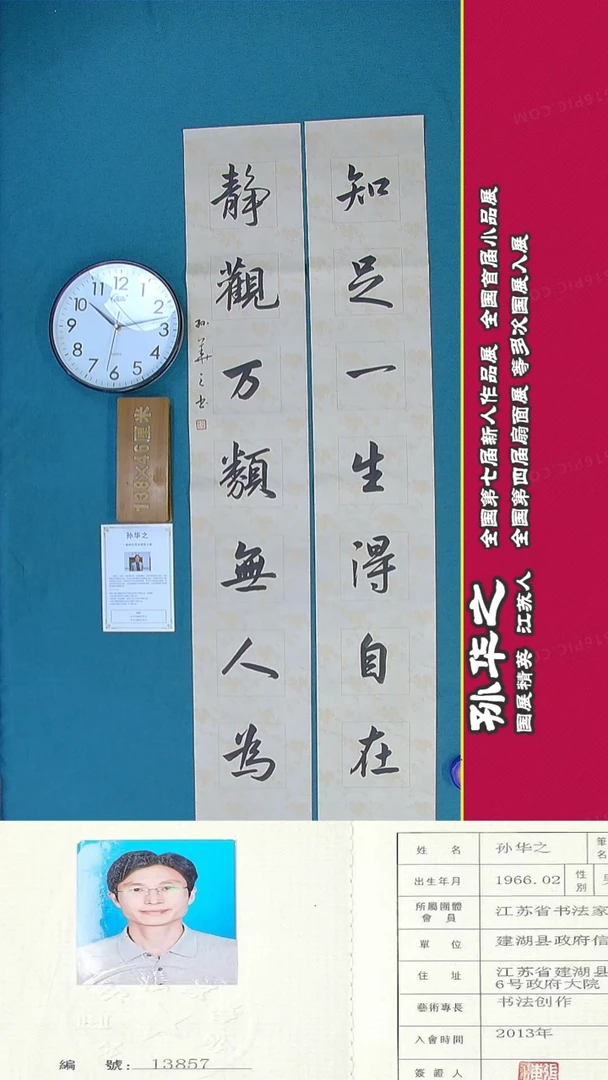 知足一生得自在
静觀万類無人為
孙華之书
12
1
2
3
4
5
6
7
8
9
10
11
138×46厘米
孙华之
孙华之
国展精英 江苏人
全国第七届新人作品展 全国首届小品展
全国第四届扇面展 等多次国展入展
编 號: 13857
姓 名 孙华之 筆名
出生年月 1966.02 性別
所屬團體會員 江苏省书法家
單 位 建湖县政府信
住 址 江苏省建湖县
6号政府大院
藝術專長 书法创作
入會時間 2013年
簽證人